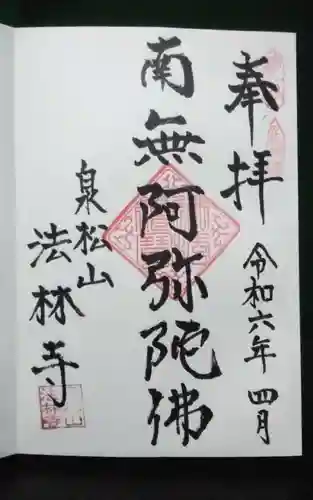 奉拝
令和六年 四月
南無阿弥陀佛
泉松山
法林寺